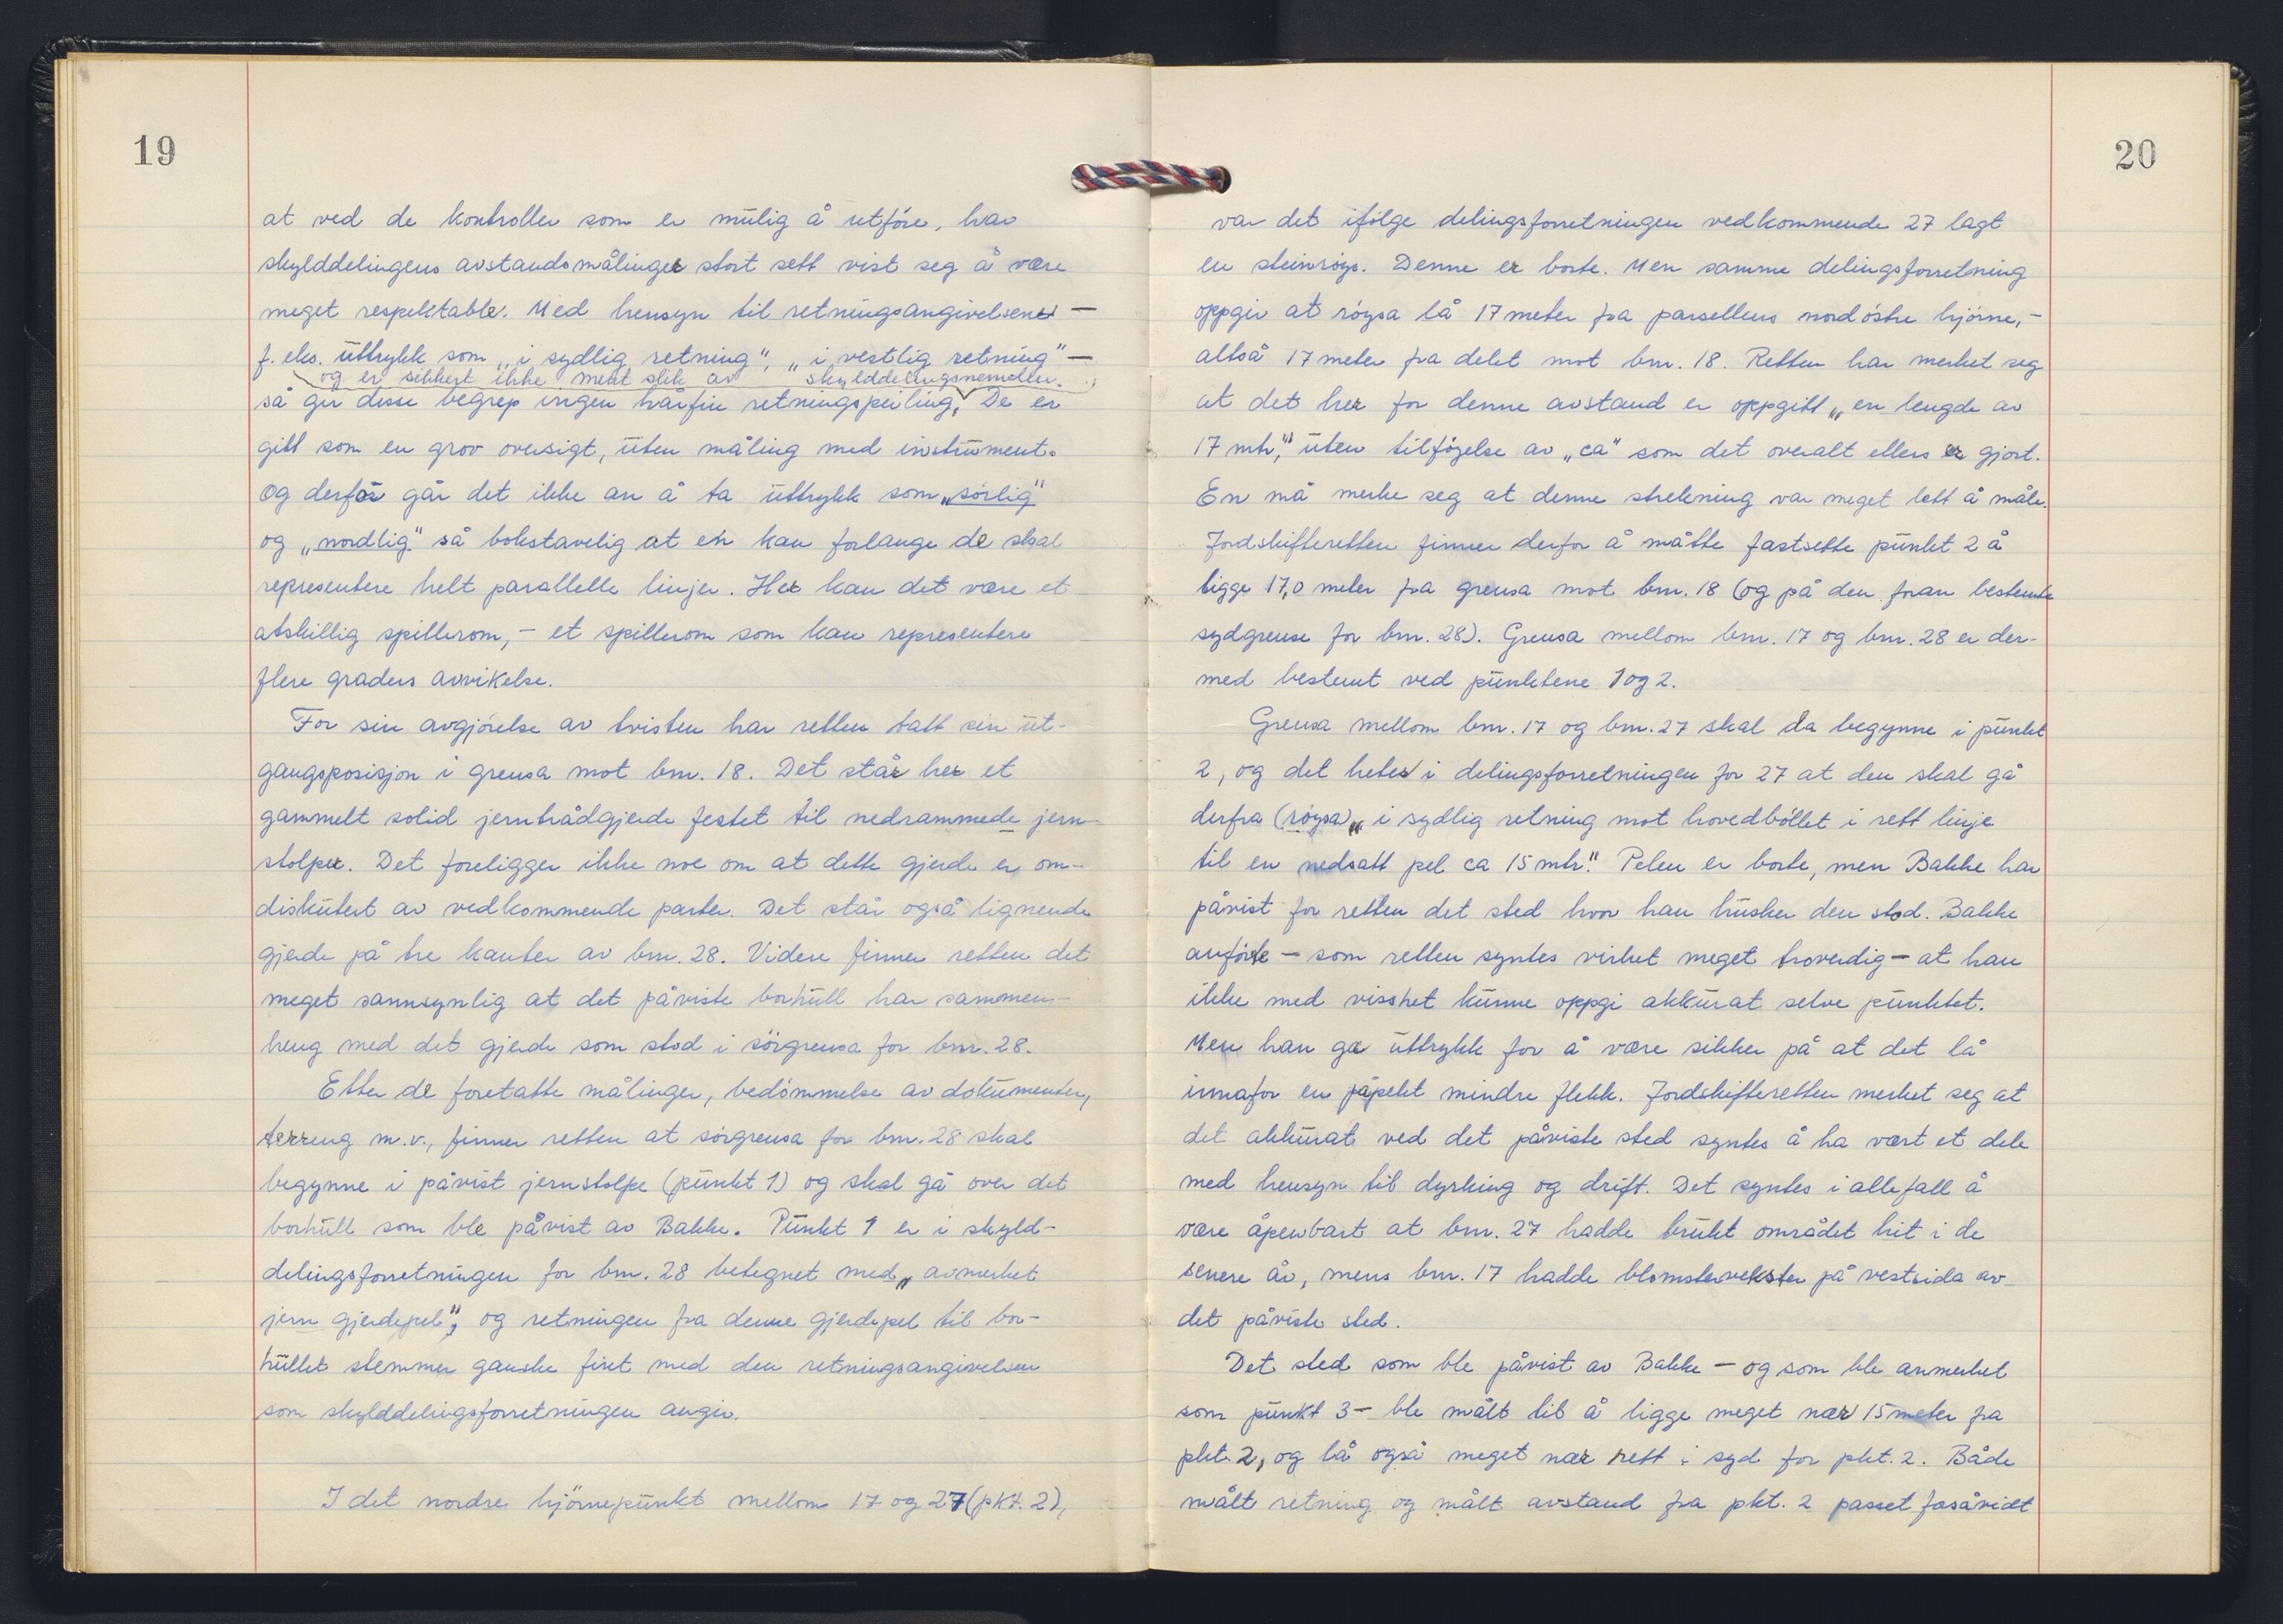 19
at ved de kontroller som er mulig å utføre, har
skylddelingens avstandsmålinger stort sett vist seg å være
meget respektable. Med hensyn til retningsangivelsene —
f. eks. uttrykk som „i sydlig retning", „i vestlig retning" —
og er sikkert ikke ment slik av skylddelingsnemnden.
så gir disse begrep ingen hårfin retningspeiling, De er
gitt som en grov oversigt, uten måling med instrument.
Og derfor går det ikke an å ta uttrykk som „sørlig"
og „nordlig" så bokstavelig at en kan forlange de skal
representere helt parallelle linjer. Her kan det være et
atskillig spillerom, – et spillerom som kan representere
flere graders avvikelse.
For sin avgjørelse av tvisten har retten tatt sin ut-
gangsposisjon i grensa mot bnr. 18. Det står her et
gammelt solid jerntrådgjerde festet til nedrammede jern-
stolper. Det foreligger ikke noe om at dette gjerde er om-
diskutert av vedkommende parter. Det står også lignende
gjerde på tre kanter av bnr. 28. Videre finner retten det
meget sannsynlig at det påviste borhull har sammen-
heng med det gjerde som stod i sørgrensa for bnr. 28.
Etter de foretatte målinger, bedømmelse av dokumenter,
terreng m.v., finner retten at sørgrensa for bnr. 28 skal
begynne i påvist jernstolpe (punkt 1) og skal gå over det
borhull som ble påvist av Bakke. Punkt 1 er i skyld-
delingsforretningen for bnr. 28 betegnet med „avmerket
jern gjerdepel", og retningen fra denne gjerdepel til bor-
hullet stemmer ganske fint med den retningsangivelsen
som skylddelingsforretningen angir.
I det nordre hjørnepunkt mellom 17 og 27 (pkt. 2),
20
var det ifølge delingsforretningen vedkommende 27 lagt
en steinrøys. Denne er borte. Men samme delingsforretning
oppgir at røysa lå 17 meter fra parsellens nordøstre hjørne, –
altså 17 meter fra delet mot bnr. 18. Retten har merket seg
at det her for denne avstand er oppgitt „en lengde av
17 mtr", uten tilføyelse av „ca" som det overalt ellers er gjort.
En må merke seg at denne strekning var meget lett å måle.
Jordskifteretten finner derfor å måtte fastsette punkt 2 å
ligge 17,0 meter fra grensa mot bnr. 18 (og på den foran bestemte
sydgrense for bnr. 28). Grensa mellom bnr. 17 og bnr. 28 er der-
med bestemt ved punktene 1 og 2.
Grensa mellom bnr. 17 og bnr. 27 skal da begynne i punkt
2, og det heter i delingsforretningen for 27 at den skal gå
derfra (røysa) „i sydlig retning mot hovedbøllet i rett linje
til en nedsatt pel ca 15 mtr." Pelen er borte, men Bakke har
påvist for retten det sted hvor han husker den stod. Bakke
anførte – som retten syntes virket meget troverdig – at han
ikke med visshet kunne oppgi akkurat selve punktet.
Men han ga uttrykk for å være sikker på at det lå
innafor en påpekt mindre flekk. Jordskifteretten merket seg at
det akkurat ved det påviste sted syntes å ha vært et dele
med hensyn til dyrking og drift. Det syntes i allefall å
være åpenbart at bnr. 27 hadde brukt området hit i de
senere år, mens bnr. 17 hadde blomstervekster på vestsida av
det påviste sted.
Det sted som ble påvist av Bakke – og som ble anmerket
som punkt 3 – ble målt til å ligge meget nær 15 meter fra
pkt. 2, og lå også meget nær rett i syd for pkt. 2. Både
målt retning og målt avstand fra pkt. 2 passet forsåvidt